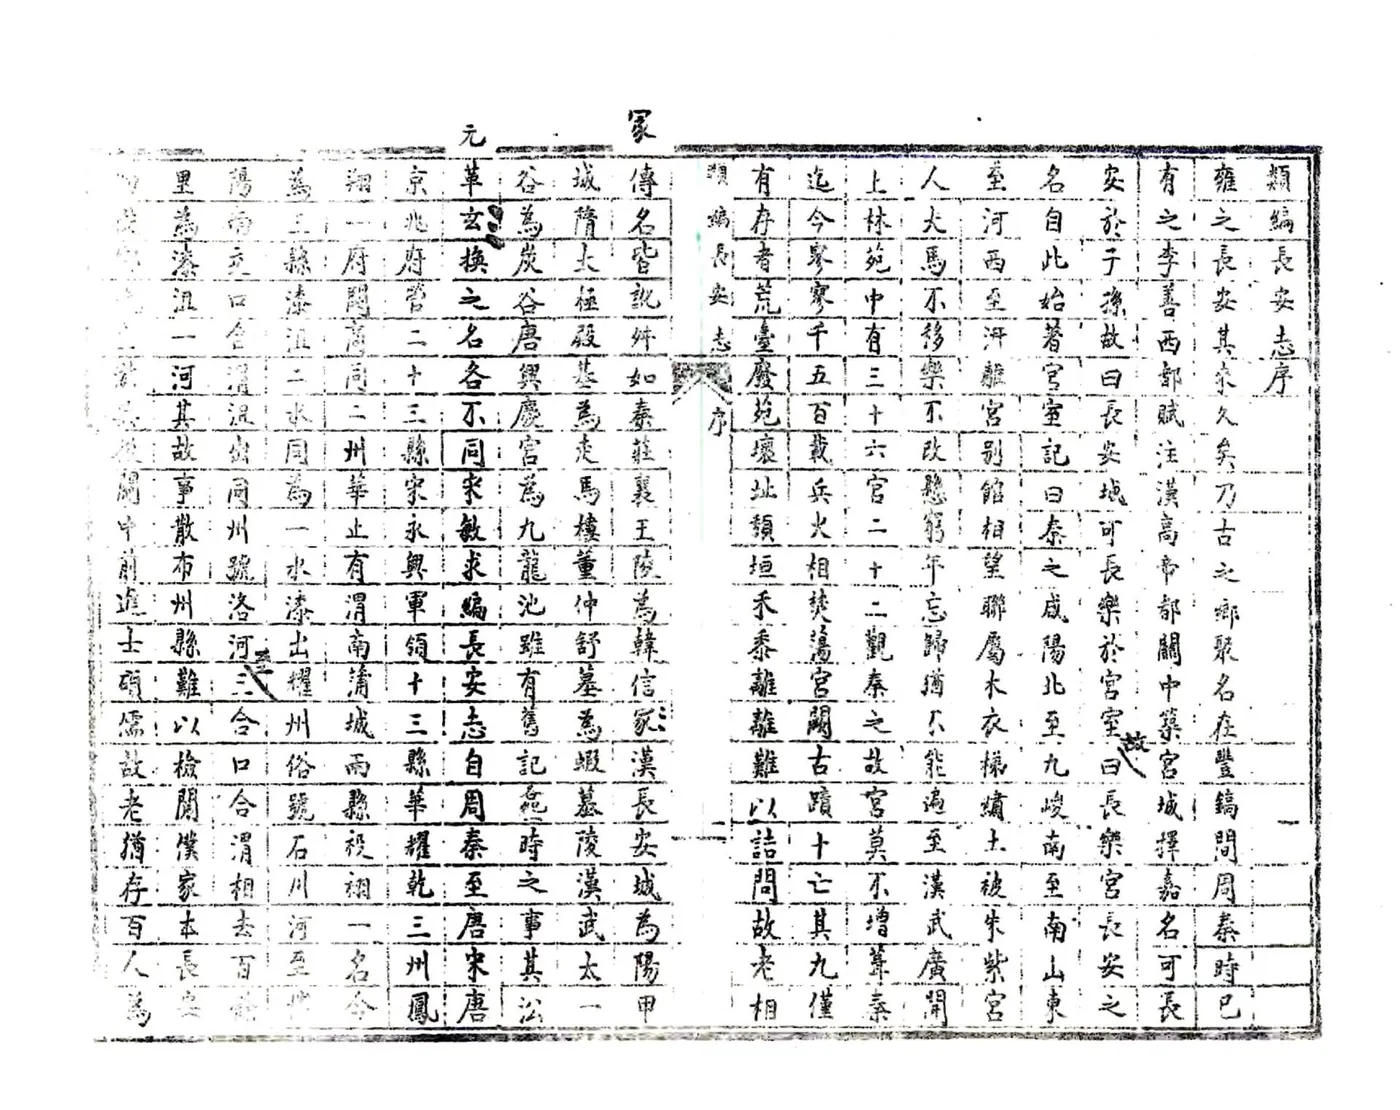 類編長安志序
雍之長安其來久矣乃古之鄉聚名在豐鎬間周秦時已
有之李善西都賦注漢高帝都關中築宮城擇嘉名可長
安於子孫故曰長安城可長樂於宮室曰長樂宮長安之
故
名自此始著宮室記曰秦之咸陽北至九嵕南至南山東
至河西至汧離宮別館相望聯屬木衣綈繡土被朱紫宮
人犬馬不移樂不改懸窮年忘歸猶不能遍至漢武廣開
上林苑中有三十六宮二十二觀秦之故宮莫不增葺秦
迄今寥寥千五百載兵火相焚蕩宮闕古蹟十亡其九僅
有存者荒臺廢苑壞址頹垣禾黍離離難以詰問故老相
類編長安志 序
冢
傳名皆訛舛如秦莊襄王陵為韓信冢漢長安城為陽甲
城隋太極殿基為走馬樓董仲舒墓為蝦蟇陵漢武太一
谷為炭谷唐興慶宮為九龍池雖有舊記載一時之事其沿
元
革玄換之名各不同宋敏求編長安志自周秦至唐宋唐
京兆府管二十三縣宋永興軍領十三縣華耀乾三州鳳
翔一府關商同二州華止有渭南蒲城兩縣祋祤一名今
為三縣漆沮二水同為一水漆出耀州俗號石川河至
陽南交口合渭沮出同州號洛河三合口合渭相去百
至
里為漆沮一河其故事散布州縣難以檢閱僕家本長安
關中前進士碩儒故老猶存百人為